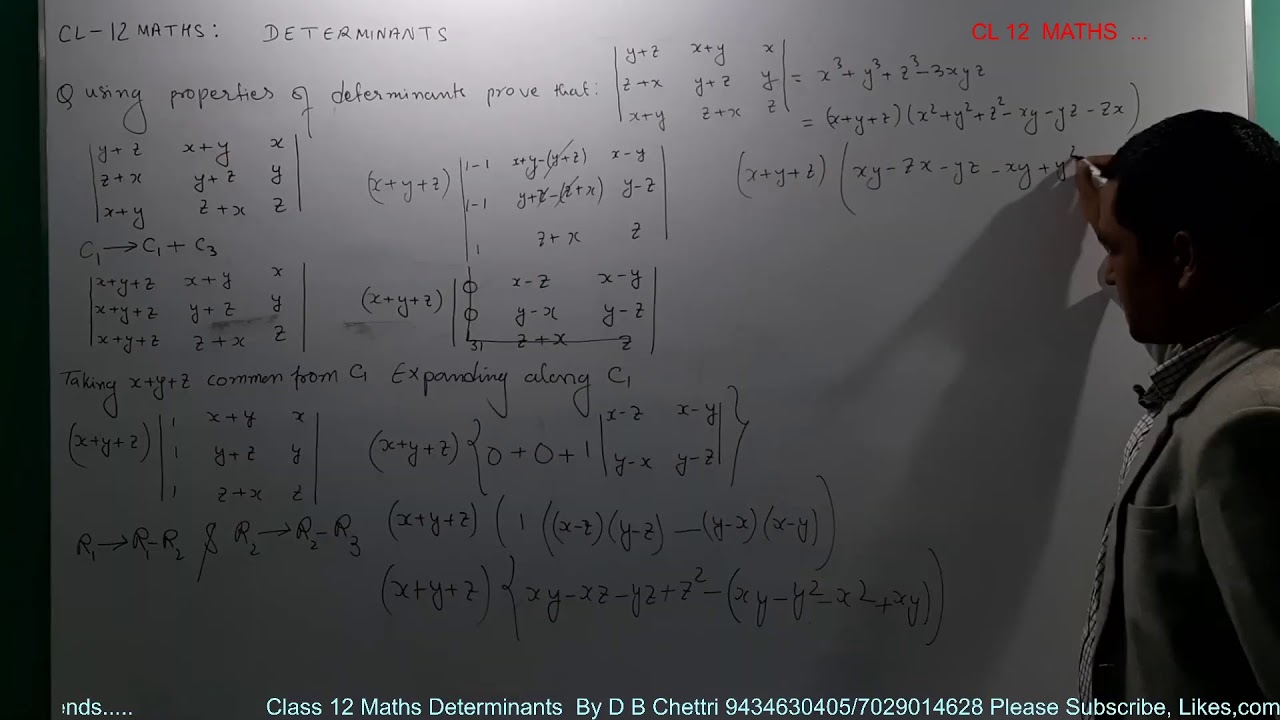 CL-12 MATHS: DETERMINANTS
CL 12 MATHS ...
Q using properties of determinants prove that: | y+z x+y x |
| z+x y+z y | = x³+y³+z³-3xyz
| x+y z+x z |
= (x+y+z)(x²+y²+z²-xy-yz-zx)
| y+z x+y x |
| z+x y+z y |
| x+y z+x z |
C₁→C₁+C₃
| x+y+z x+y x |
| x+y+z y+z y |
| x+y+z z+x z |
Taking x+y+z common from C₁
(x+y+z) | 1 x+y x |
| 1 y+z y |
| 1 z+x z |
R₁→R₁-R₂ & R₂→R₂-R₃
(x+y+z) | 1-1 x+y-(y+z) x-y |
| 1-1 y+z-(z+x) y-z |
| 1 z+x z |
(x+y+z) | 0 x-z x-y |
| 0 y-x y-z |
| 1 z+x z |
Expanding along C₁
(x+y+z) { 0+0+1 | x-z x-y |
| y-x y-z | }
(x+y+z) ( 1 ((x-z)(y-z) - (y-x)(x-y) )
(x+y+z) { xy-xz-yz+z²-(xy-y²-x²+xy) )
(x+y+z) ( xy-zx-yz-xy+y²
ends..... Class 12 Maths Determinants By D B Chettri 9434630405/7029014628 Please Subscribe, Likes,com